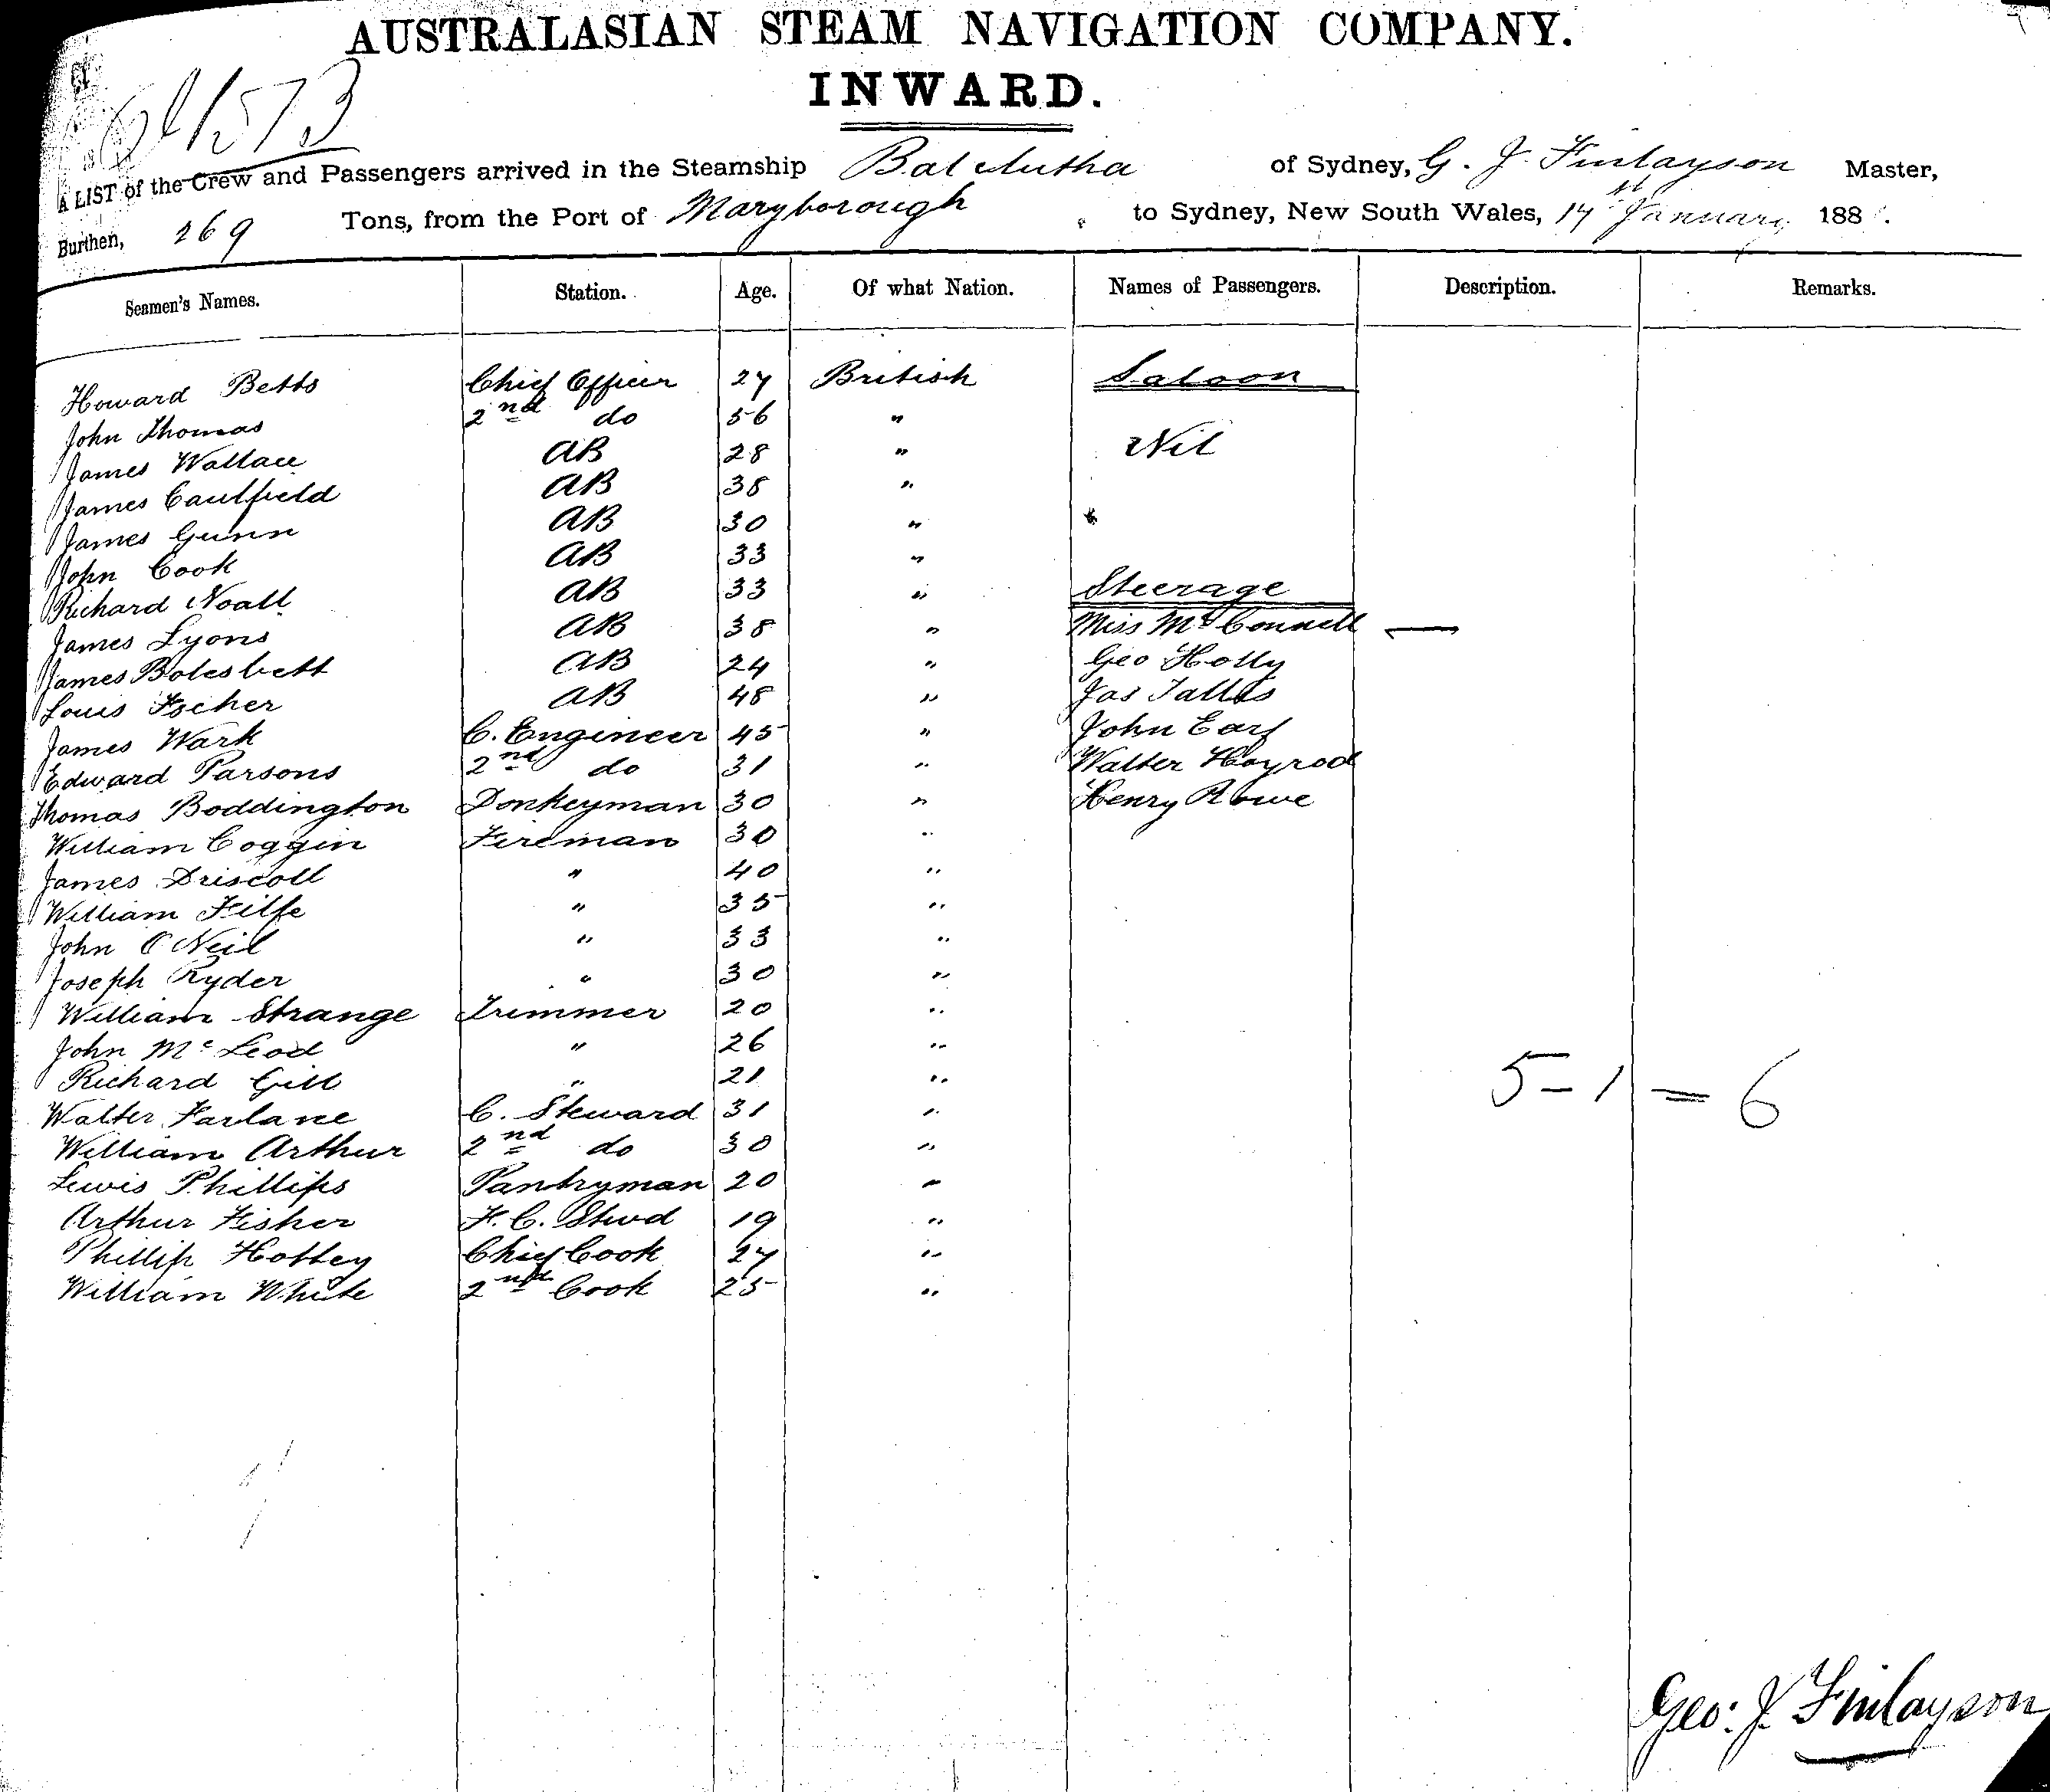 AUSTRALASIAN STEAM NAVIGATION COMPANY.
INWARD.
A LIST of the Crew and Passengers arrived in the Steamship Balclutha of Sydney, G. J. Finlayson Master,
Burthen, 269 Tons, from the Port of Maryborough to Sydney, New South Wales, 14 January 188
Seamen's Names. Station. Age. Of what Nation. Names of Passengers. Description. Remarks.
Howard Betts Chief Officer 27 British Saloon
John Thomas 2nd do 56 "
James Wallace AB 28 " Nil
James Caulfield AB 38 "
James Gunn AB 30 "
John Cook AB 33 "
Richard Noall AB 33 " Steerage
James Lyons AB 38 " Miss McConnell —
James AB 24 " Geo Holly
Louis AB 48 " Jas
James Wark C. Engineer 45 " John Earl
Edward Parsons 2nd do 31 " Walter
Thomas Boddington Donkeyman 30 " Henry Rowe
William Coggin Fireman 30 "
James Driscoll " 40 "
William " 35 "
John O'Neil " 33 "
Joseph Ryder " 30 "
William Strange Trimmer 20 "
John McLeod " 26 "
Richard Gill " 21 "
5 - 1 = 6
Walter Farlane C. Steward 31 "
William Arthur 2nd do 30 "
Lewis Phillips Pantryman 20 "
Arthur Fisher F. C. Stwd 19 "
Phillip Hobbey Chief Cook 27 "
William White 2nd Cook 25 "
Geo: J. Finlayson